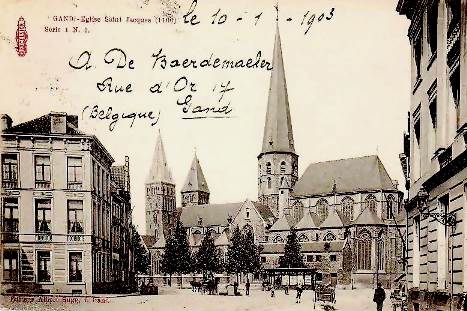 GAND.-Eglise Saint Jacques (1100)
Serie 1 N. 1.
le 10-1-1903
A. De Baerdemaeker
Rue d'Or 17
(Belgique) Gand
Editeur Albert Sugg, à Gand.